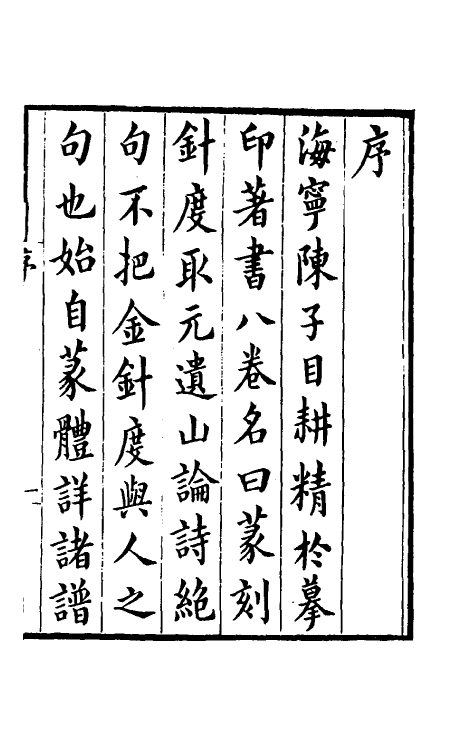 序
海寧陳子目耕精於摹
印著書八卷名曰篆刻
針度取元遺山論詩絕
句不把金針度與人之
句也始自篆體詳諸譜
序
一